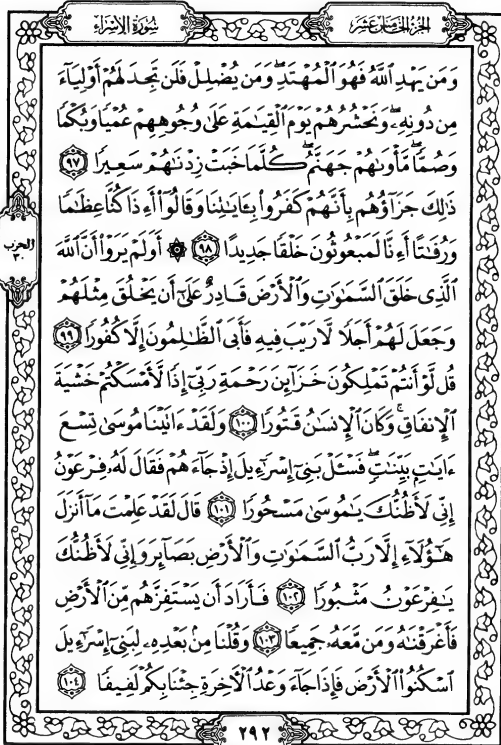 سُورَةُ الإِسْرَاءِ
الجُزْءُ الخَامِسَ عَشَرَ
وَمَن يَهْدِ ٱللَّهُ فَهُوَ ٱلْمُهْتَدِ ۖ وَمَن يُضْلِلْ فَلَن تَجِدَ لَهُمْ أَوْلِيَآءَ
مِن دُونِهِۦ ۖ وَنَحْشُرُهُمْ يَوْمَ ٱلْقِيَـٰمَةِ عَلَىٰ وُجُوهِهِمْ عُمْيًا وَبُكْمًا
وَصُمًّا ۖ مَّأْوَىٰهُمْ جَهَنَّمُ ۖ كُلَّمَا خَبَتْ زِدْنَـٰهُمْ سَعِيرًا ٩٧
ذَٰلِكَ جَزَآؤُهُم بِأَنَّهُمْ كَفَرُوا۟ بِـَٔايَـٰتِنَا وَقَالُوٓا۟ أَءِذَا كُنَّا عِظَـٰمًا
وَرُفَـٰتًا أَءِنَّا لَمَبْعُوثُونَ خَلْقًا جَدِيدًا ٩٨ ۞ أَوَلَمْ يَرَوْا۟ أَنَّ ٱللَّهَ
ٱلَّذِى خَلَقَ ٱلسَّمَـٰوَٰتِ وَٱلْأَرْضَ قَادِرٌ عَلَىٰٓ أَن يَخْلُقَ مِثْلَهُمْ
وَجَعَلَ لَهُمْ أَجَلًا لَّا رَيْبَ فِيهِ فَأَبَى ٱلظَّـٰلِمُونَ إِلَّا كُفُورًا ٩٩
قُل لَّوْ أَنتُمْ تَمْلِكُونَ خَزَآئِنَ رَحْمَةِ رَبِّىٓ إِذًا لَّأَمْسَكْتُمْ خَشْيَةَ
ٱلْإِنفَاقِ ۚ وَكَانَ ٱلْإِنسَـٰنُ قَتُورًا ١٠٠ وَلَقَدْ ءَاتَيْنَا مُوسَىٰ تِسْعَ
ءَايَـٰتٍۭ بَيِّنَـٰتٍ ۖ فَسْـَٔلْ بَنِىٓ إِسْرَٰٓءِيلَ إِذْ جَآءَهُمْ فَقَالَ لَهُۥ فِرْعَوْنُ
إِنِّى لَأَظُنُّكَ يَـٰمُوسَىٰ مَسْحُورًا ١٠١ قَالَ لَقَدْ عَلِمْتَ مَآ أَنزَلَ
هَـٰٓؤُلَآءِ إِلَّا رَبُّ ٱلسَّمَـٰوَٰتِ وَٱلْأَرْضِ بَصَآئِرَ وَإِنِّى لَأَظُنُّكَ
يَـٰفِرْعَوْنُ مَثْبُورًا ١٠٢ فَأَرَادَ أَن يَسْتَفِزَّهُم مِّنَ ٱلْأَرْضِ
فَأَغْرَقْنَـٰهُ وَمَن مَّعَهُۥ جَمِيعًا ١٠٣ وَقُلْنَا مِنۢ بَعْدِهِۦ لِبَنِىٓ إِسْرَٰٓءِيلَ
ٱسْكُنُوا۟ ٱلْأَرْضَ فَإِذَا جَآءَ وَعْدُ ٱلْـَٔاخِرَةِ جِئْنَا بِكُمْ لَفِيفًا ١٠٤
الحزب
٣٠
٢٩٢